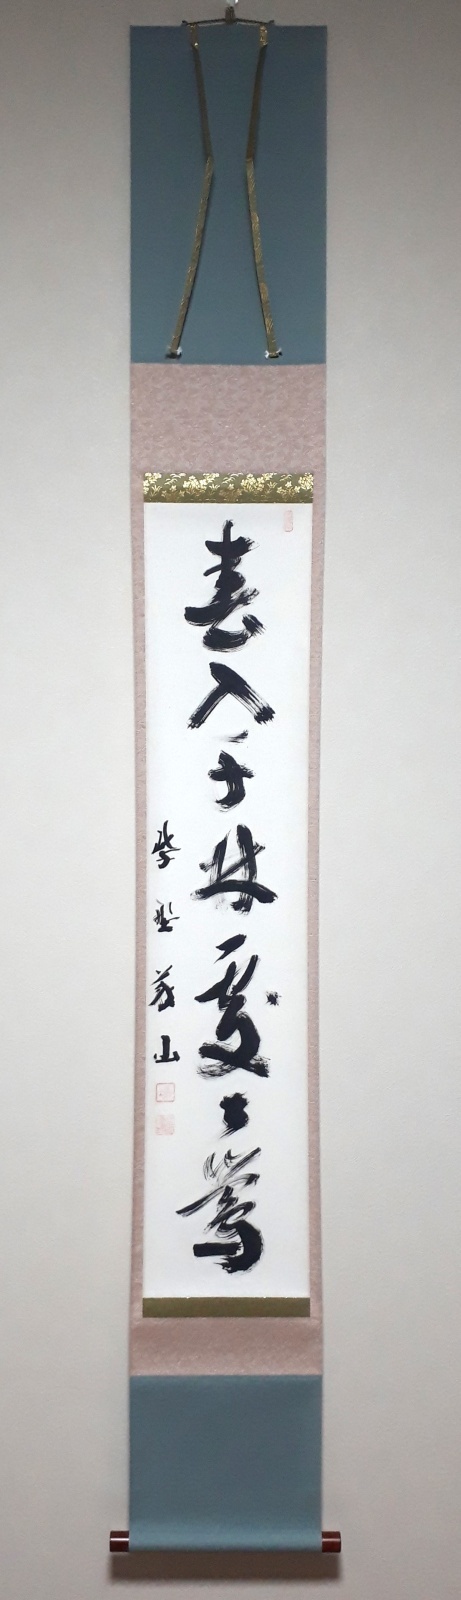 春入千林処々鶯
紫野義山